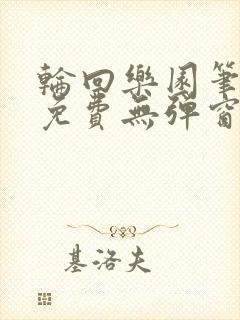 輪回樂園筆
免費無彈窗
基洛夫